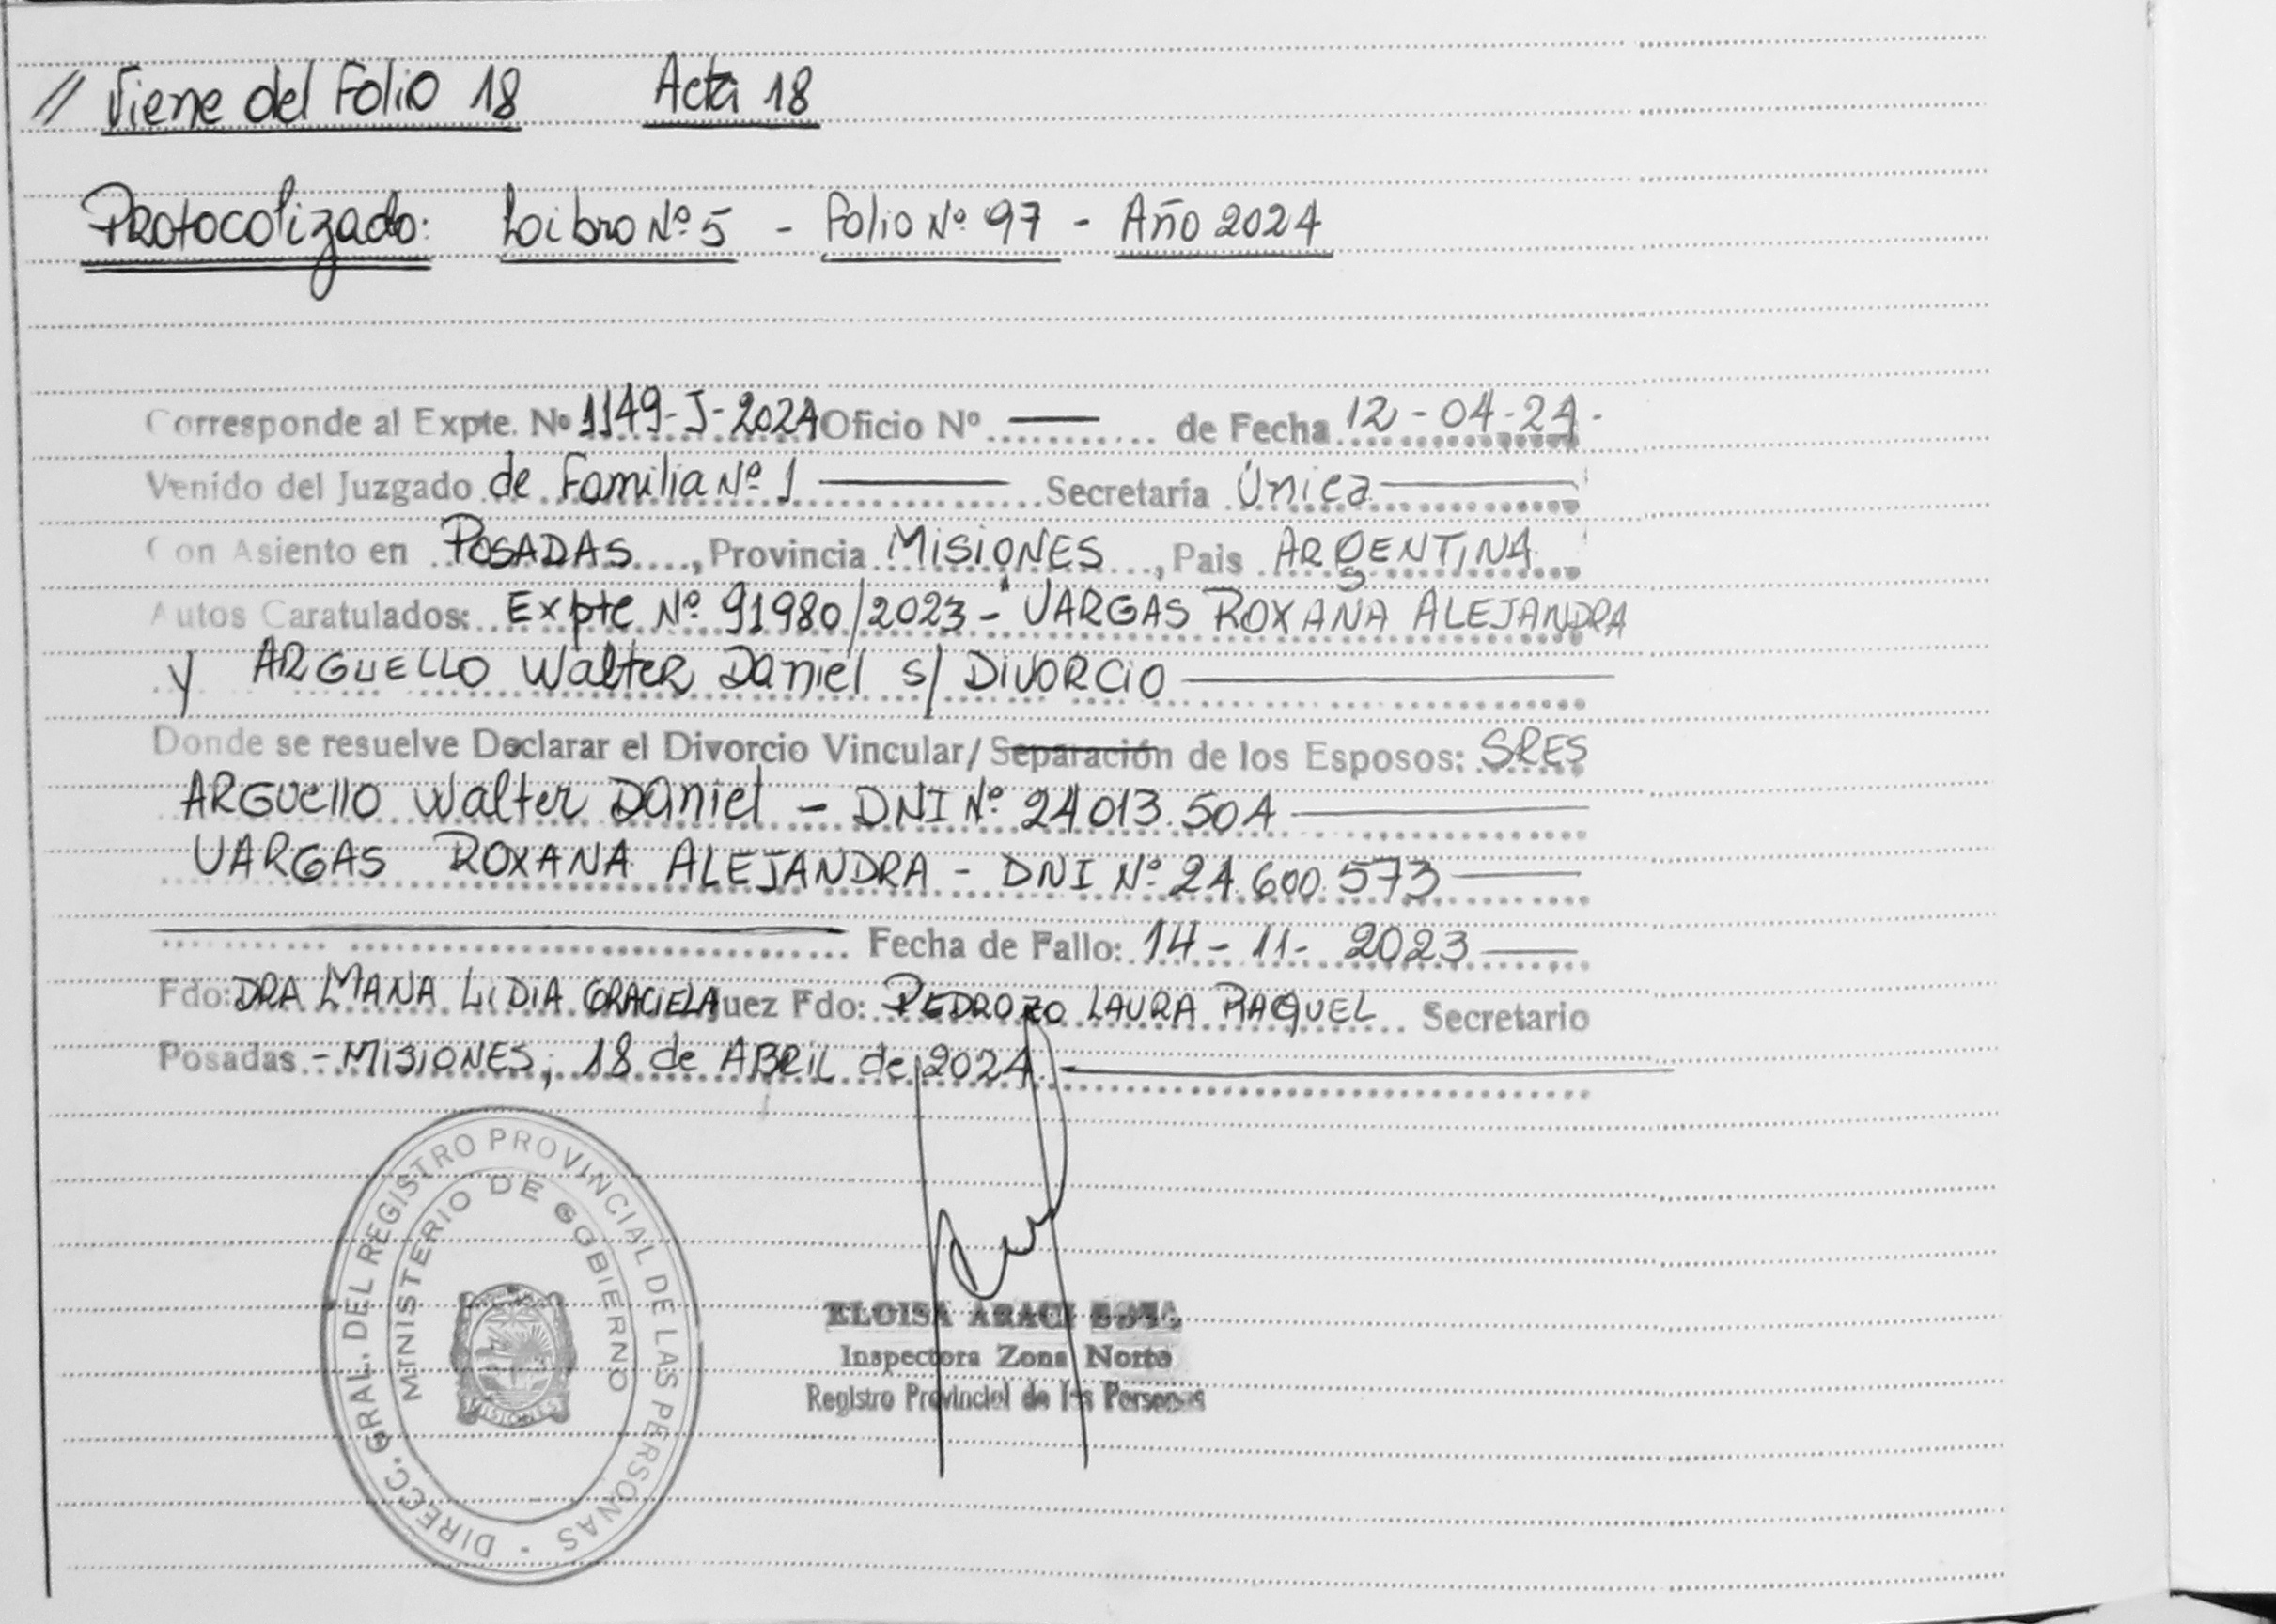 // Viene del Folio 18 Acta 18
Protocolizado: Libro Nº 5 - Folio Nº 97 - Año 2024
Corresponde al Expte. No 1149-J-2024 Oficio Nº —— de Fecha 12-04-24-
Venido del Juzgado de Familia Nº 1 —— Secretaría Única ——
Con Asiento en POSADAS, Provincia MISIONES, Pais ARGENTINA
Autos Caratulados: Expte Nº 91980/2023 - "VARGAS ROXANA ALEJANDRA
y ARGUELLO Walter Daniel s/ DIVORCIO ——
Donde se resuelve Declarar el Divorcio Vincular/ Separación de los Esposos: SRES
ARGUello Walter Daniel - DNI Nº 24013.504 ——
VARGAS ROXANA ALEJANDRA - DNI Nº 24.600.573 ——
—— Fecha de Fallo: 14-11-2023 ——
Fdo: DRA MANA LIDIA GRACIELA Juez Fdo: PEDROZO LAURA RAQUEL Secretario
Posadas - MISIONES, 18 de ABRIL de 2024. ——
DIRECC. GRAL. DEL REGISTRO PROVINCIAL DE LAS PERSONAS
MINISTERIO DE GOBIERNO
MISIONES
ELOISA ARACI
Inspectora Zona Norte
Registro Provincial de las Personas